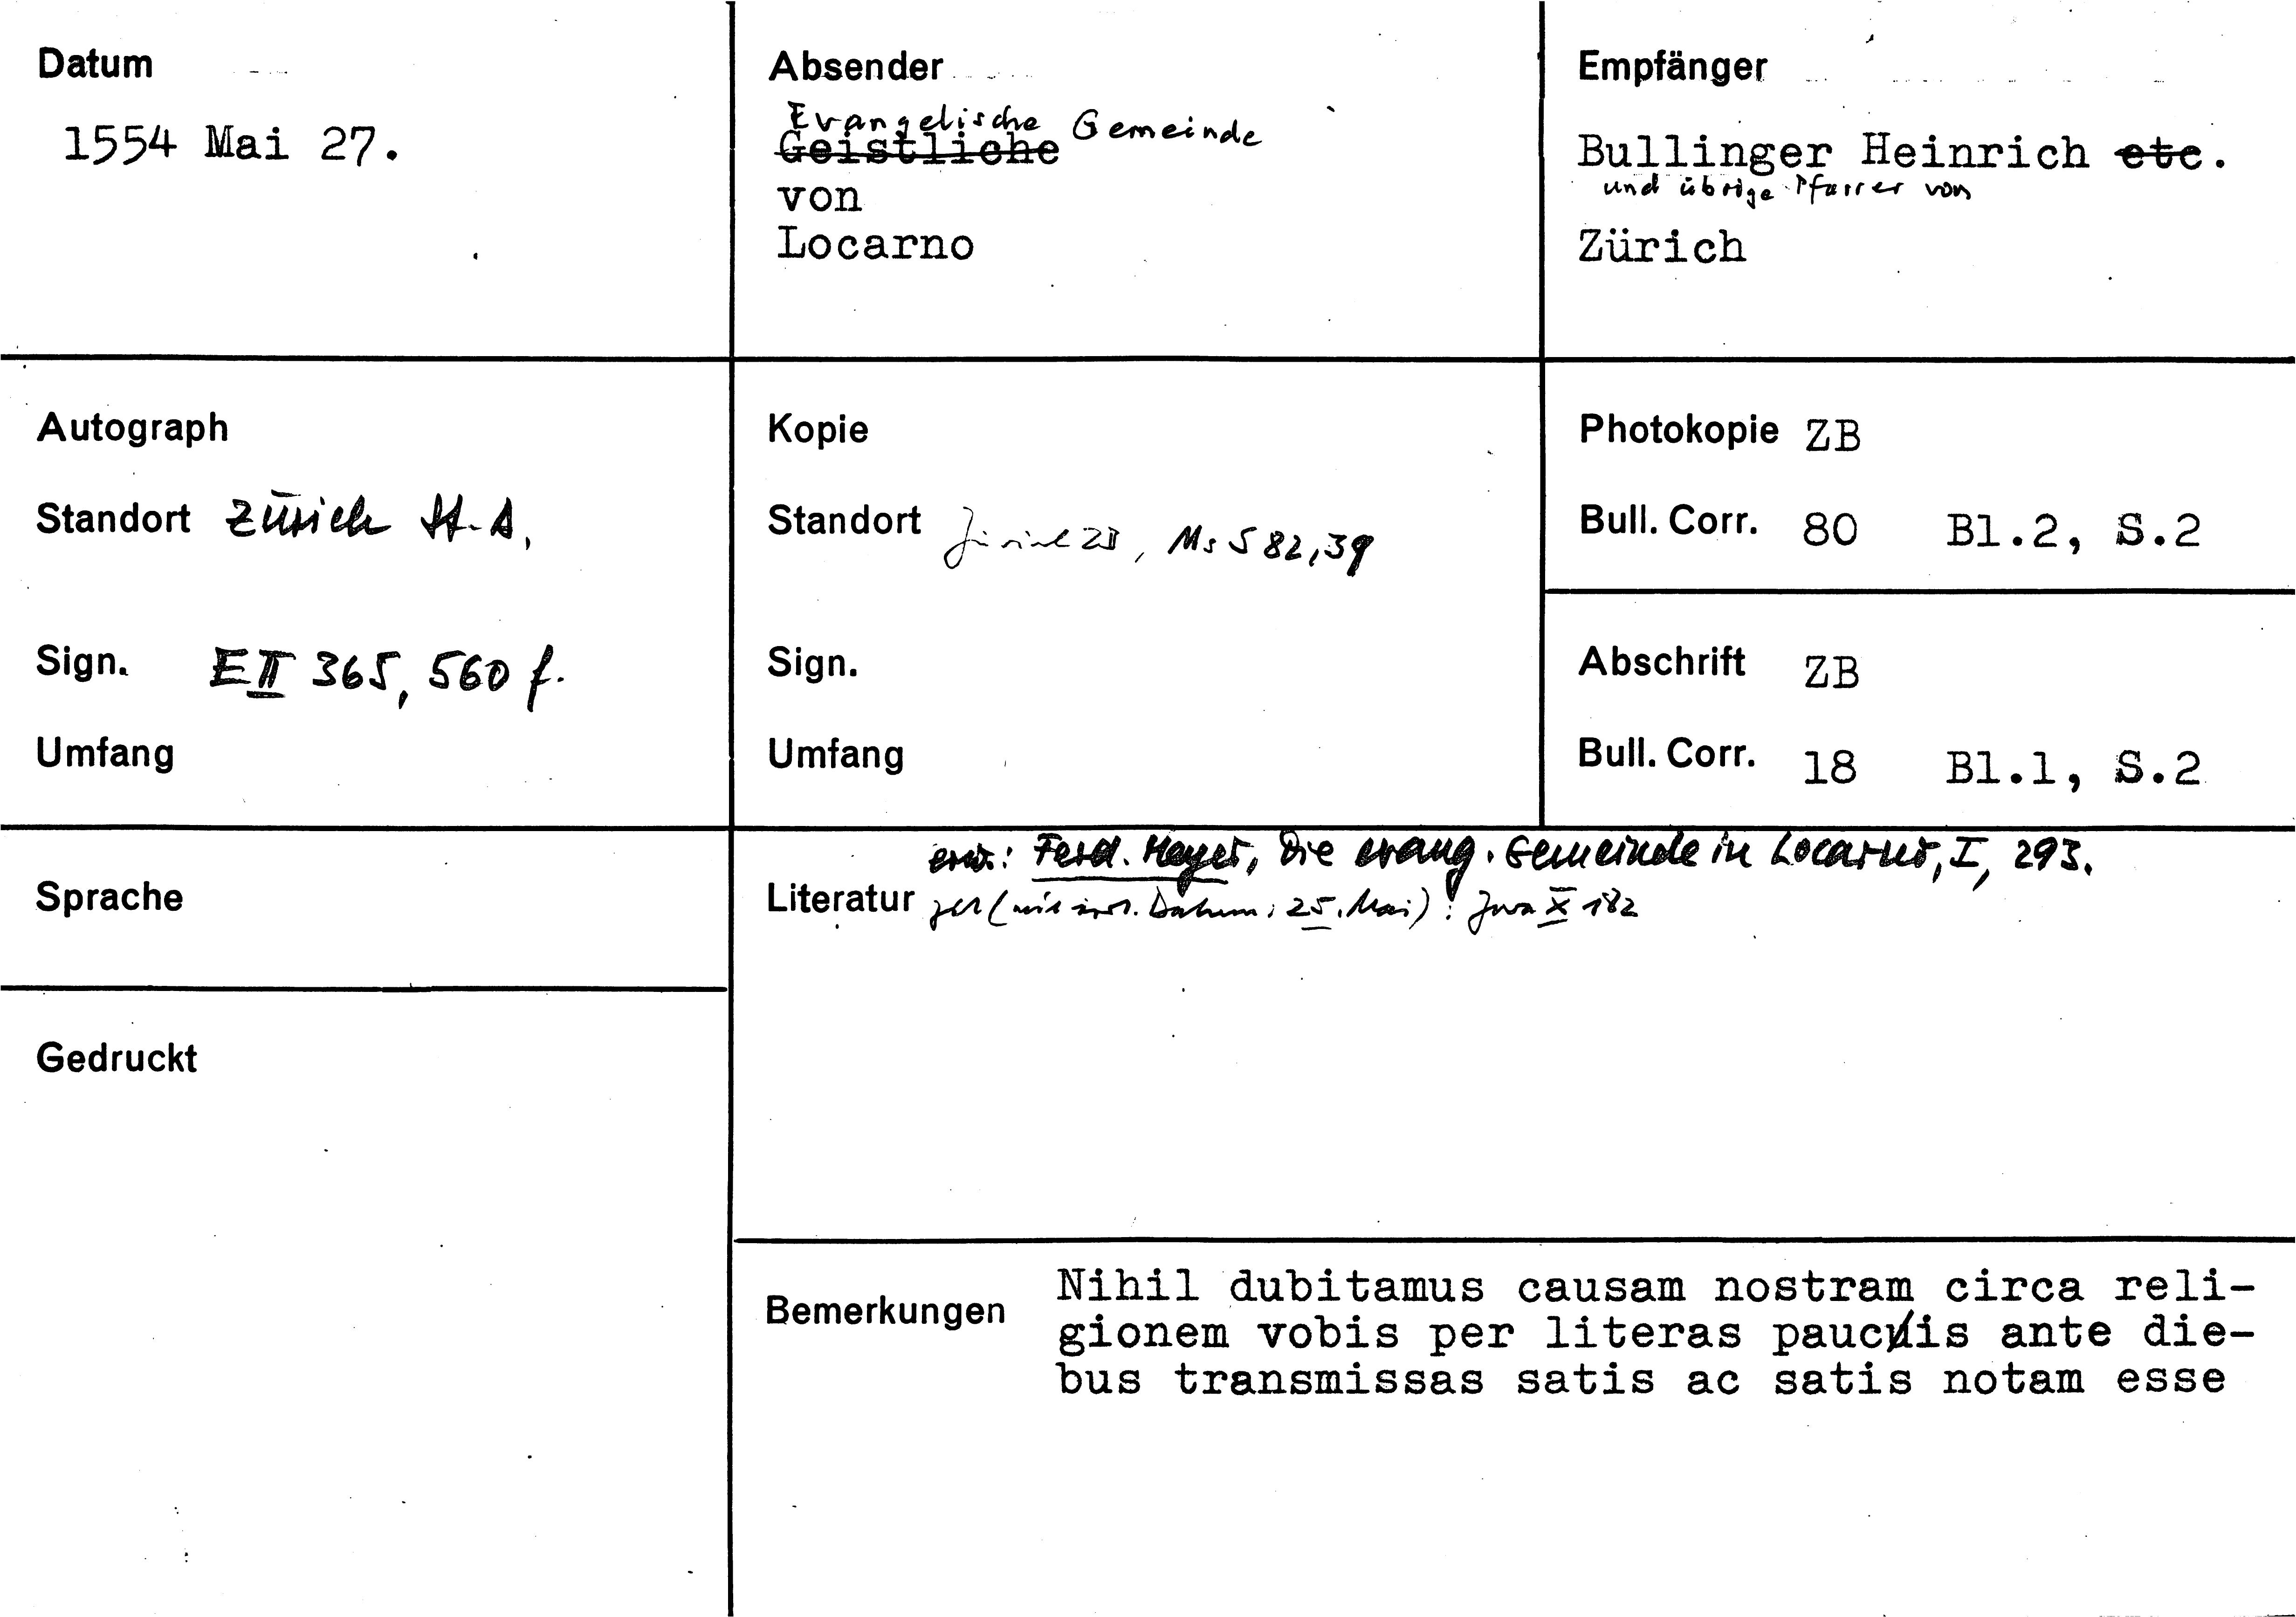 Datum
1554 Mai 27.
Absender
Evangelische Gemeinde
Geistliche
von
Locarno
Empfänger
Bullinger Heinrich etc.
und übrige Pfarrer von
Zürich
Autograph
Standort Zürich St.A.
Sign. E II 365, 560 f.
Umfang
Kopie
Standort Zürich ZB, Ms S 82, 39
Sign.
Umfang
Photokopie ZB
Bull. Corr. 80 Bl.2, S.2
Abschrift ZB
Bull. Corr. 18 Bl.1, S.2
Sprache
Gedruckt
erw.: Ferd. Meyer, Die evang. Gemeinde in Locarno, I, 293.
Literatur (mit Datum: 25. Mai): X 182
Bemerkungen
Nihil dubitamus causam nostram circa reli-
gionem vobis per literas paucis ante die-
bus transmissas satis ac satis notam esse